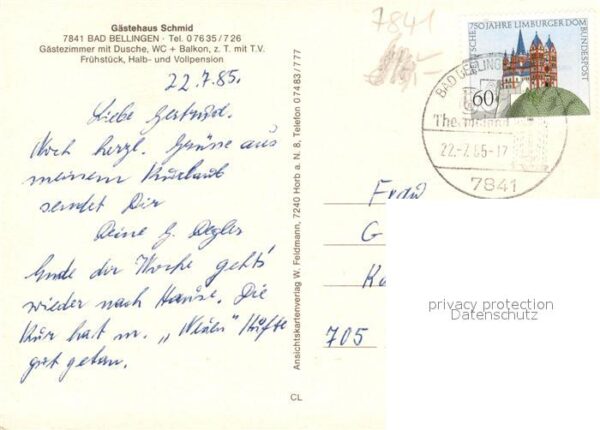 Gästehaus Schmid
7841 BAD BELLINGEN · Tel. 0 76 35 / 7 26
Gästezimmer mit Dusche, WC + Balkon, z. T. mit T.V.
Frühstück, Halb- und Vollpension
22.7.85.
Liebe Gertrud.
Noch herzl. Grüße aus
meinem Kurlaub
sendet Dir
Deine G. Degler
Ende der Woche geht's
wieder nach Hause. Die
Kur hat m. „Neuen" Hüfte
gut getan.
Ansichtskartenverlag W. Feldmann, 7240 Horb a. N. 8, Telefon 0 74 83 / 7 77
CL
7841
750 JAHRE LIMBURGER DOM
DEUTSCHE BUNDESPOST
60
BAD BELLINGEN
22.-7.85-17
7841
Frau
G
705
privacy protection
Datenschutz